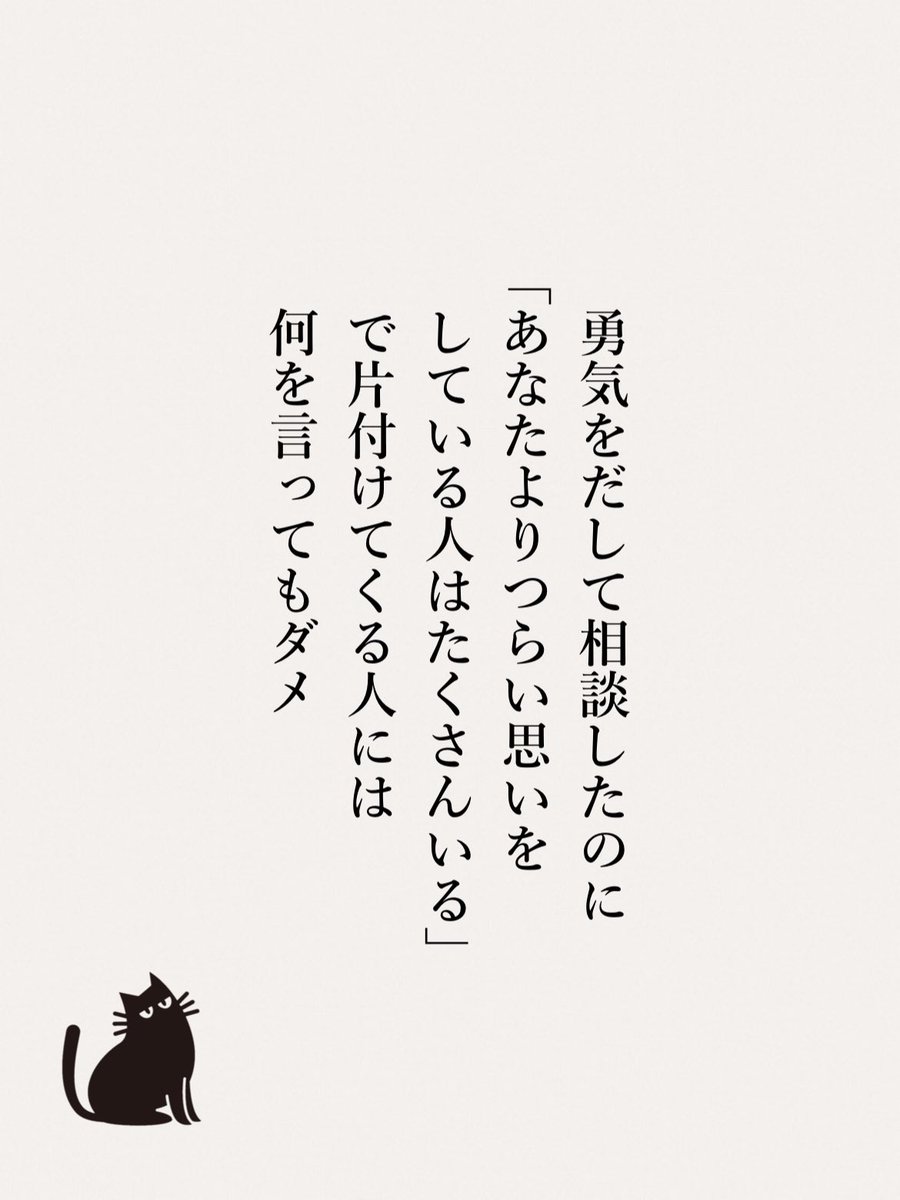 勇気をだして相談したのに
「あなたよりつらい思いを
している人はたくさんいる」
で片付けてくる人には
何を言ってもダメ